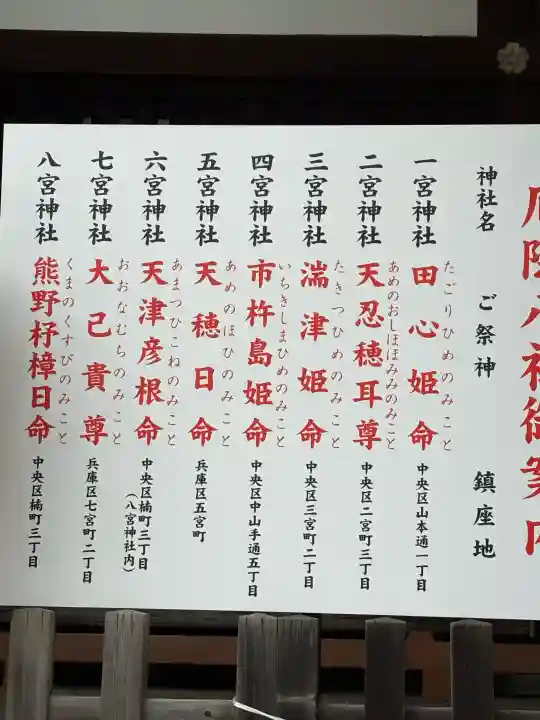 厄除八社御案内
神社名 ご祭神 鎮座地
一宮神社 田心姫命 中央区山本通一丁目
たごりひめのみこと
二宮神社 天忍穂耳尊 中央区二宮町三丁目
あめのおしほほみみのみこと
三宮神社 湍津姫命 中央区三宮町二丁目
たきつひめのみこと
四宮神社 市杵島姫命 中央区中山手通五丁目
いちきしまひめのみこと
五宮神社 天穂日命 兵庫区五宮町
あめのほひのみこと
六宮神社 天津彦根命 中央区楠町三丁目
あまつひこねのみこと
(八宮神社内)
七宮神社 大己貴尊 兵庫区七宮町二丁目
おおなむちのみこと
八宮神社 熊野杼樟日命 中央区楠町三丁目
くまのくすびのみこと